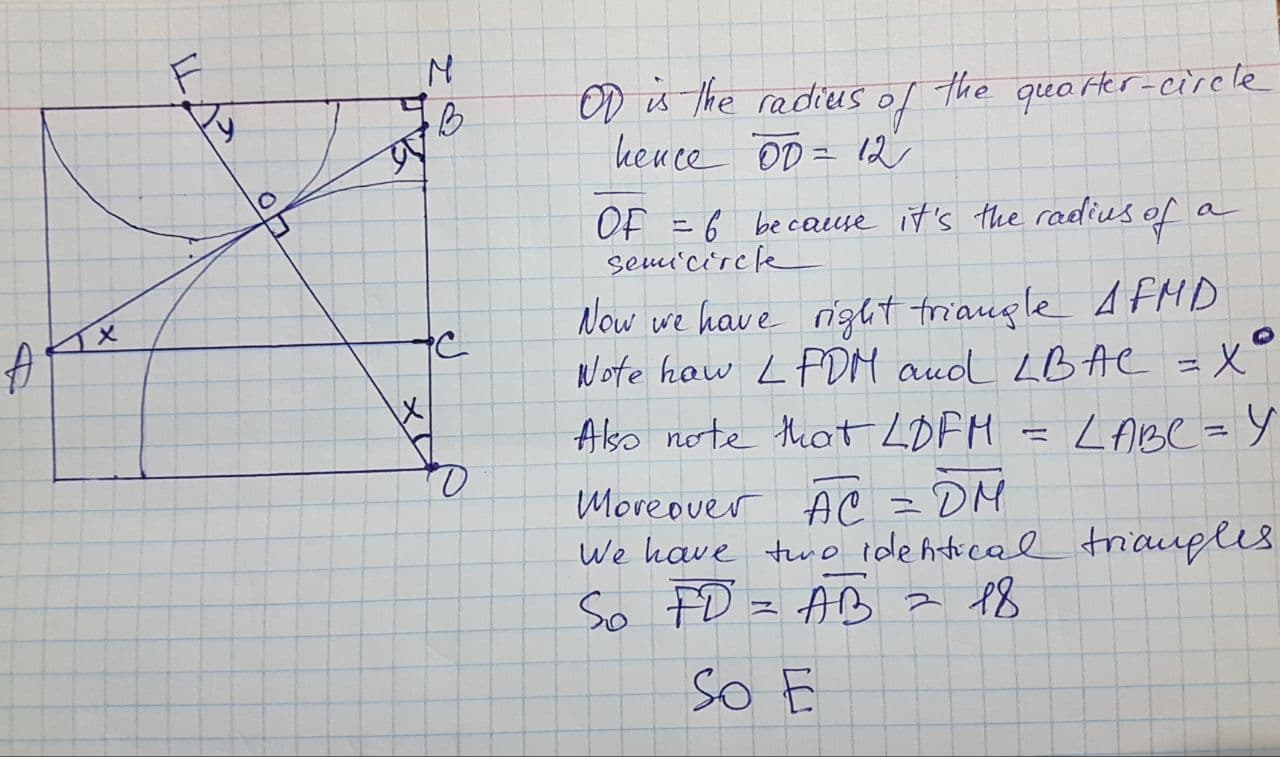 F
M
B
y
y
O
x
A
C
x
D
OD is the radius of the quarter-circle
hence OD = 12
OF = 6 because it's the radius of a
semicircle
Now we have right triangle ΔFMD
Note haw ∠FDM and ∠BAC = x°
Also note that ∠DFM = ∠ABC = y
Moreover AC = DM
We have two identical triangles
So FD = AB = 18
SO E